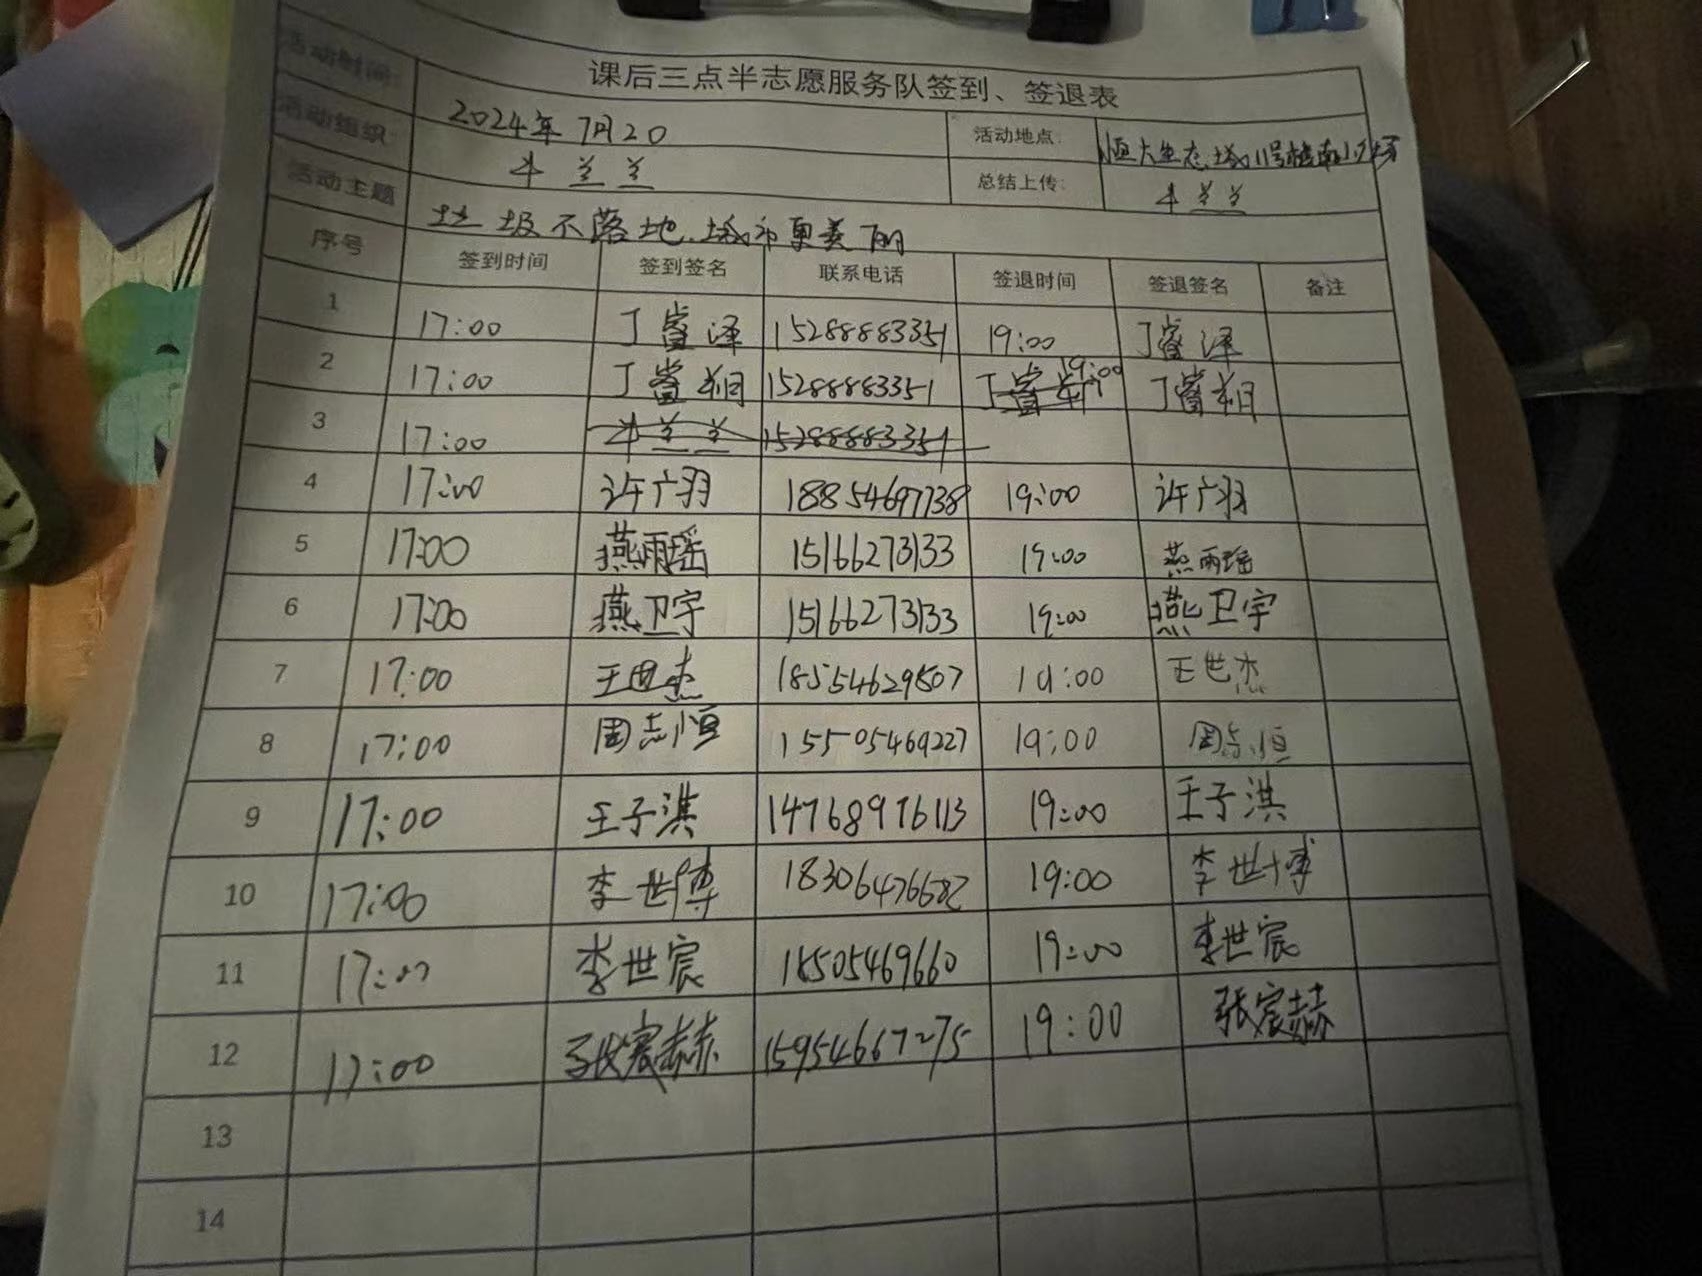 课后三点半志愿服务队签到、签退表
活动时间: 2024年7月20 活动地点: 恒大生态城11号楼南小广场
活动组织: 牛兰兰 总结上传: 牛兰兰
活动主题 垃圾不落地.城市更美丽
序号 签到时间 签到签名 联系电话 签退时间 签退签名 备注
1 17:00 丁睿泽 15288883351 19:00 丁睿泽
2 17:00 丁睿翔 15288883351 19:00 丁睿翔
3 17:00 牛兰兰 15288883351
4 17:00 许广羽 18854697738 19:00 许广羽
5 17:00 燕雨瑶 15166273133 19:00 燕雨瑶
6 17:00 燕卫宇 15166273133 19:00 燕卫宇
7 17:00 王世杰 18554629807 19:00 王世杰
8 17:00 周志恒 15505469227 19:00 周志恒
9 17:00 王子淇 14768976113 19:00 王子淇
10 17:00 李世博 18306476682 19:00 李世博
11 17:00 李世宸 18505469660 19:00 李世宸
12 17:00 张宸赫 15954667275 19:00 张宸赫
13
14